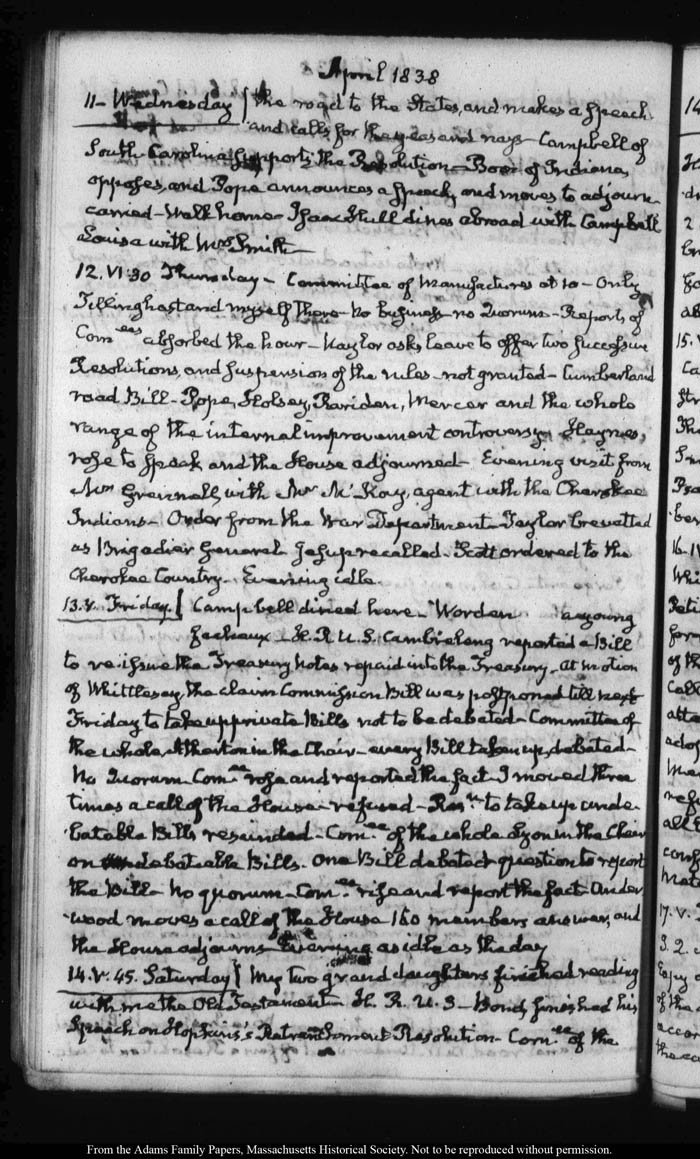 April 1838
11- Wednesday the road to the States, and makes a speech.
and calls for the yeas and nays - Campbell of
South Carolina supports the Resolution - Boon of Indiana,
opposes, and Pope announces a Speech, and moves to adjourn
carried - Walk home - Isaac Hull dines abroad with Campbell
Louisa with Mrs Smith -
12. VI:30 Thursday - Committee of Manufactures at 10 - Only
Tillinghast and myself there - No business no Quorum - Reports of
Com.ees absorbed the hour - Naylor asks leave to offer two successive
Resolutions, and suspension of the rules - not granted - Cumberland
road Bill - Pope, Holsey, Rariden, Mercer and the whole
range of the internal improvement controversy - Haynes,
rose to speak and the House adjourned - Evening visit from
Mr Grennell, with Mr McKay, agent with the Cherokee
Indians - Order from the War Department - Taylor brevetted
as Brigadier General - Jesup recalled - Scott ordered to the
Cherokee Country - Evening idle.
13. V. Friday. Campbell dined here - Worden a young
H. R. U. S. Cambreleng reported a Bill
to re-issue the Treasury Notes repaid into the Treasury - at motion
of Whittlesey, the claim Commission Bill was postponed till next
Friday to take up private Bills not to be debated - Committee of
the whole Atherton in the Chair - every Bill taken up, debated -
No Quorum Com.ee rose and reported the fact - I moved three
times a call of the House - refused - Res.n to take up unde-
batable Bills rescinded - Com.ee of the whole Lyon in the Chair
on debateable Bills. One Bill debated question to report
the Bill - No quorum - Com.ee rise and report the fact - Under-
wood moves a call of the House 150 members answer, and
the House adjourns - Evening as idle as the day
14. V. 45. Saturday My two grand daughters finished reading
with me the Old Testament - H. R. U. S - Bond finished his
Speech on Hopkins's Retrenchment Resolution - Com.ee of the
From the Adams Family Papers, Massachusetts Historical Society. Not to be reproduced without permission.